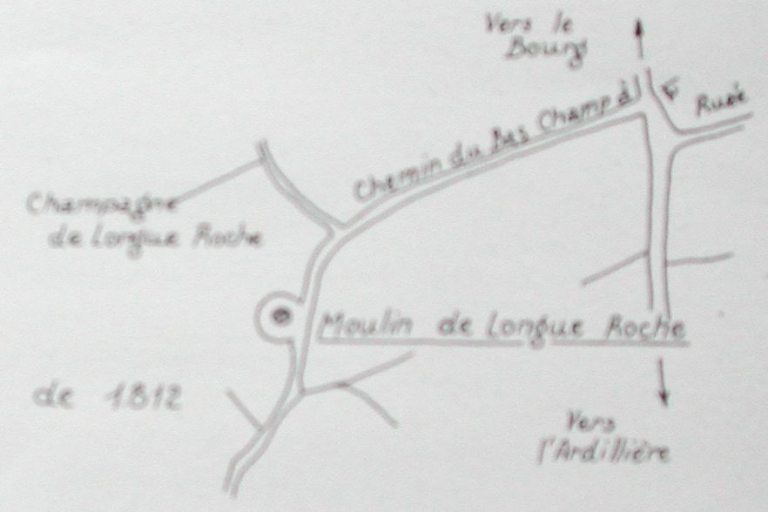 Vers le
Bourg
Chemin du Bas Champ à
Champagne
de Longue Roche
Moulin de Longue Roche
de 1812
Vers
l'Ardillière